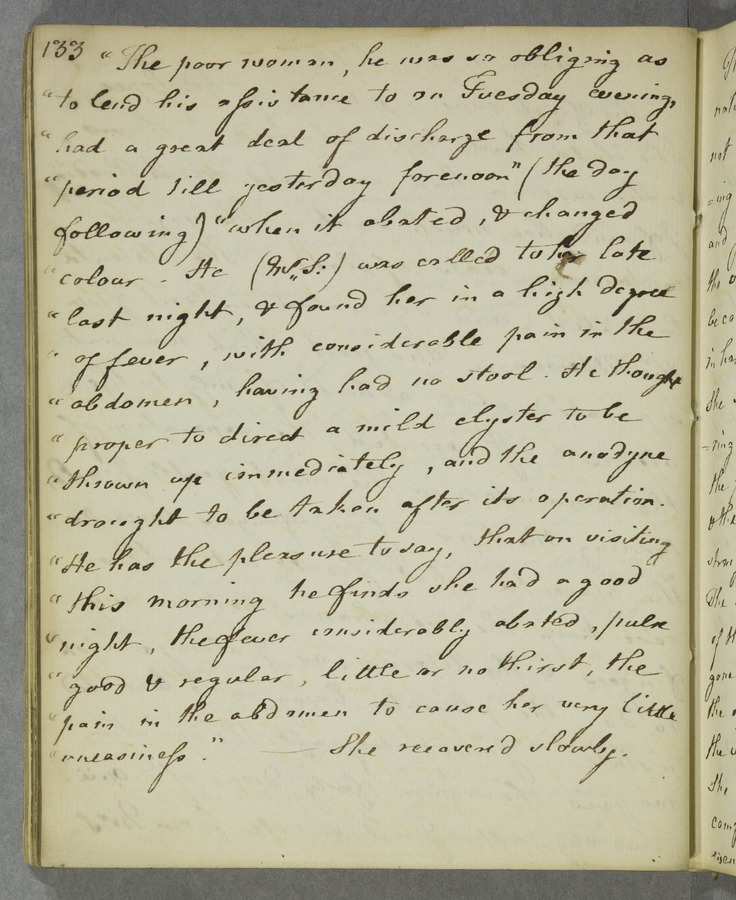 133 "The poor woman, he was so obliging as
"to lend his assistance to on Tuesday evening,
"had a great deal of discharge from that
"period till yesterday forenoon" (the day
following) "when it abated, & changed
"colour. He (Mr. S:) was called to her late
"last night, & found her in a high degree
"of fever, with considerable pain in the
"abdomen, having had no stool. He thought
"proper to direct a mild clyster to be
"thrown up immediately, and the anodyne
"draught to be taken after its operation.
"He has the pleasure to say, that on visiting
"this morning he finds she had a good
"night, the fever considerably abated, pulse
"good & regular, little or no thirst, the
"pain in the abdomen to cause her very little
"uneasiness." — She recovered slowly.